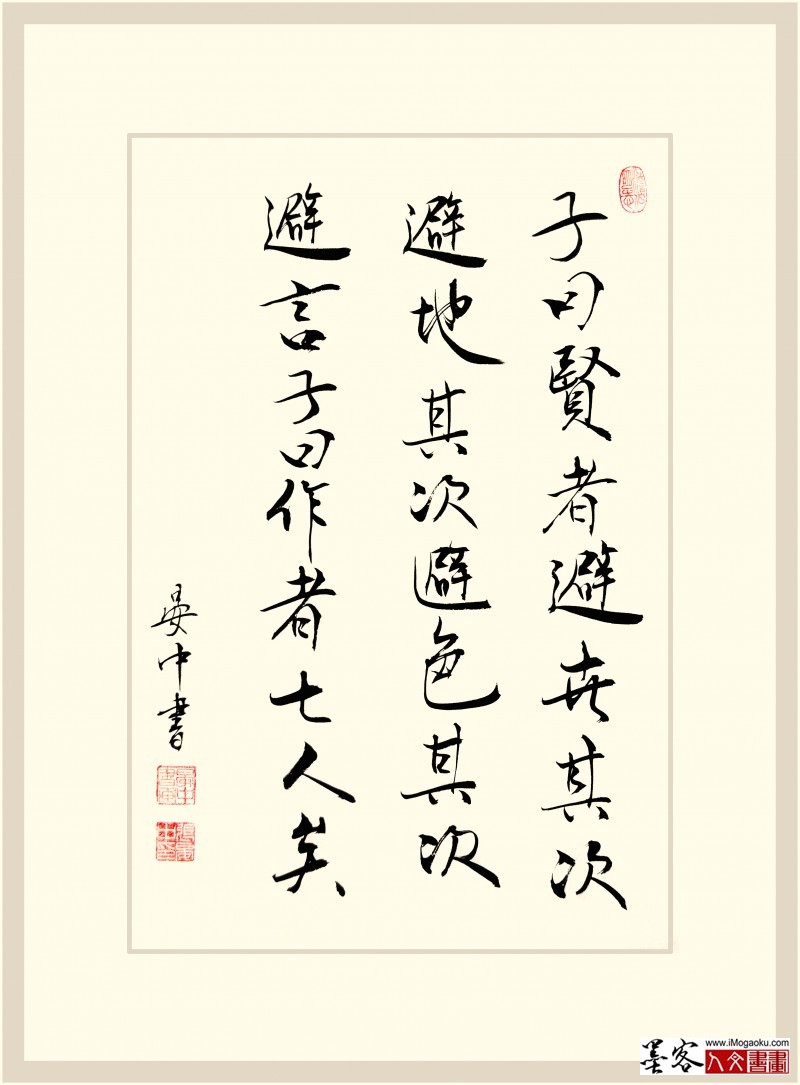 子曰賢者避世其次
避地其次避色其次
避言子曰作者七人矣
晏中書
墨客
www.iMogaoku.com
人文書畫